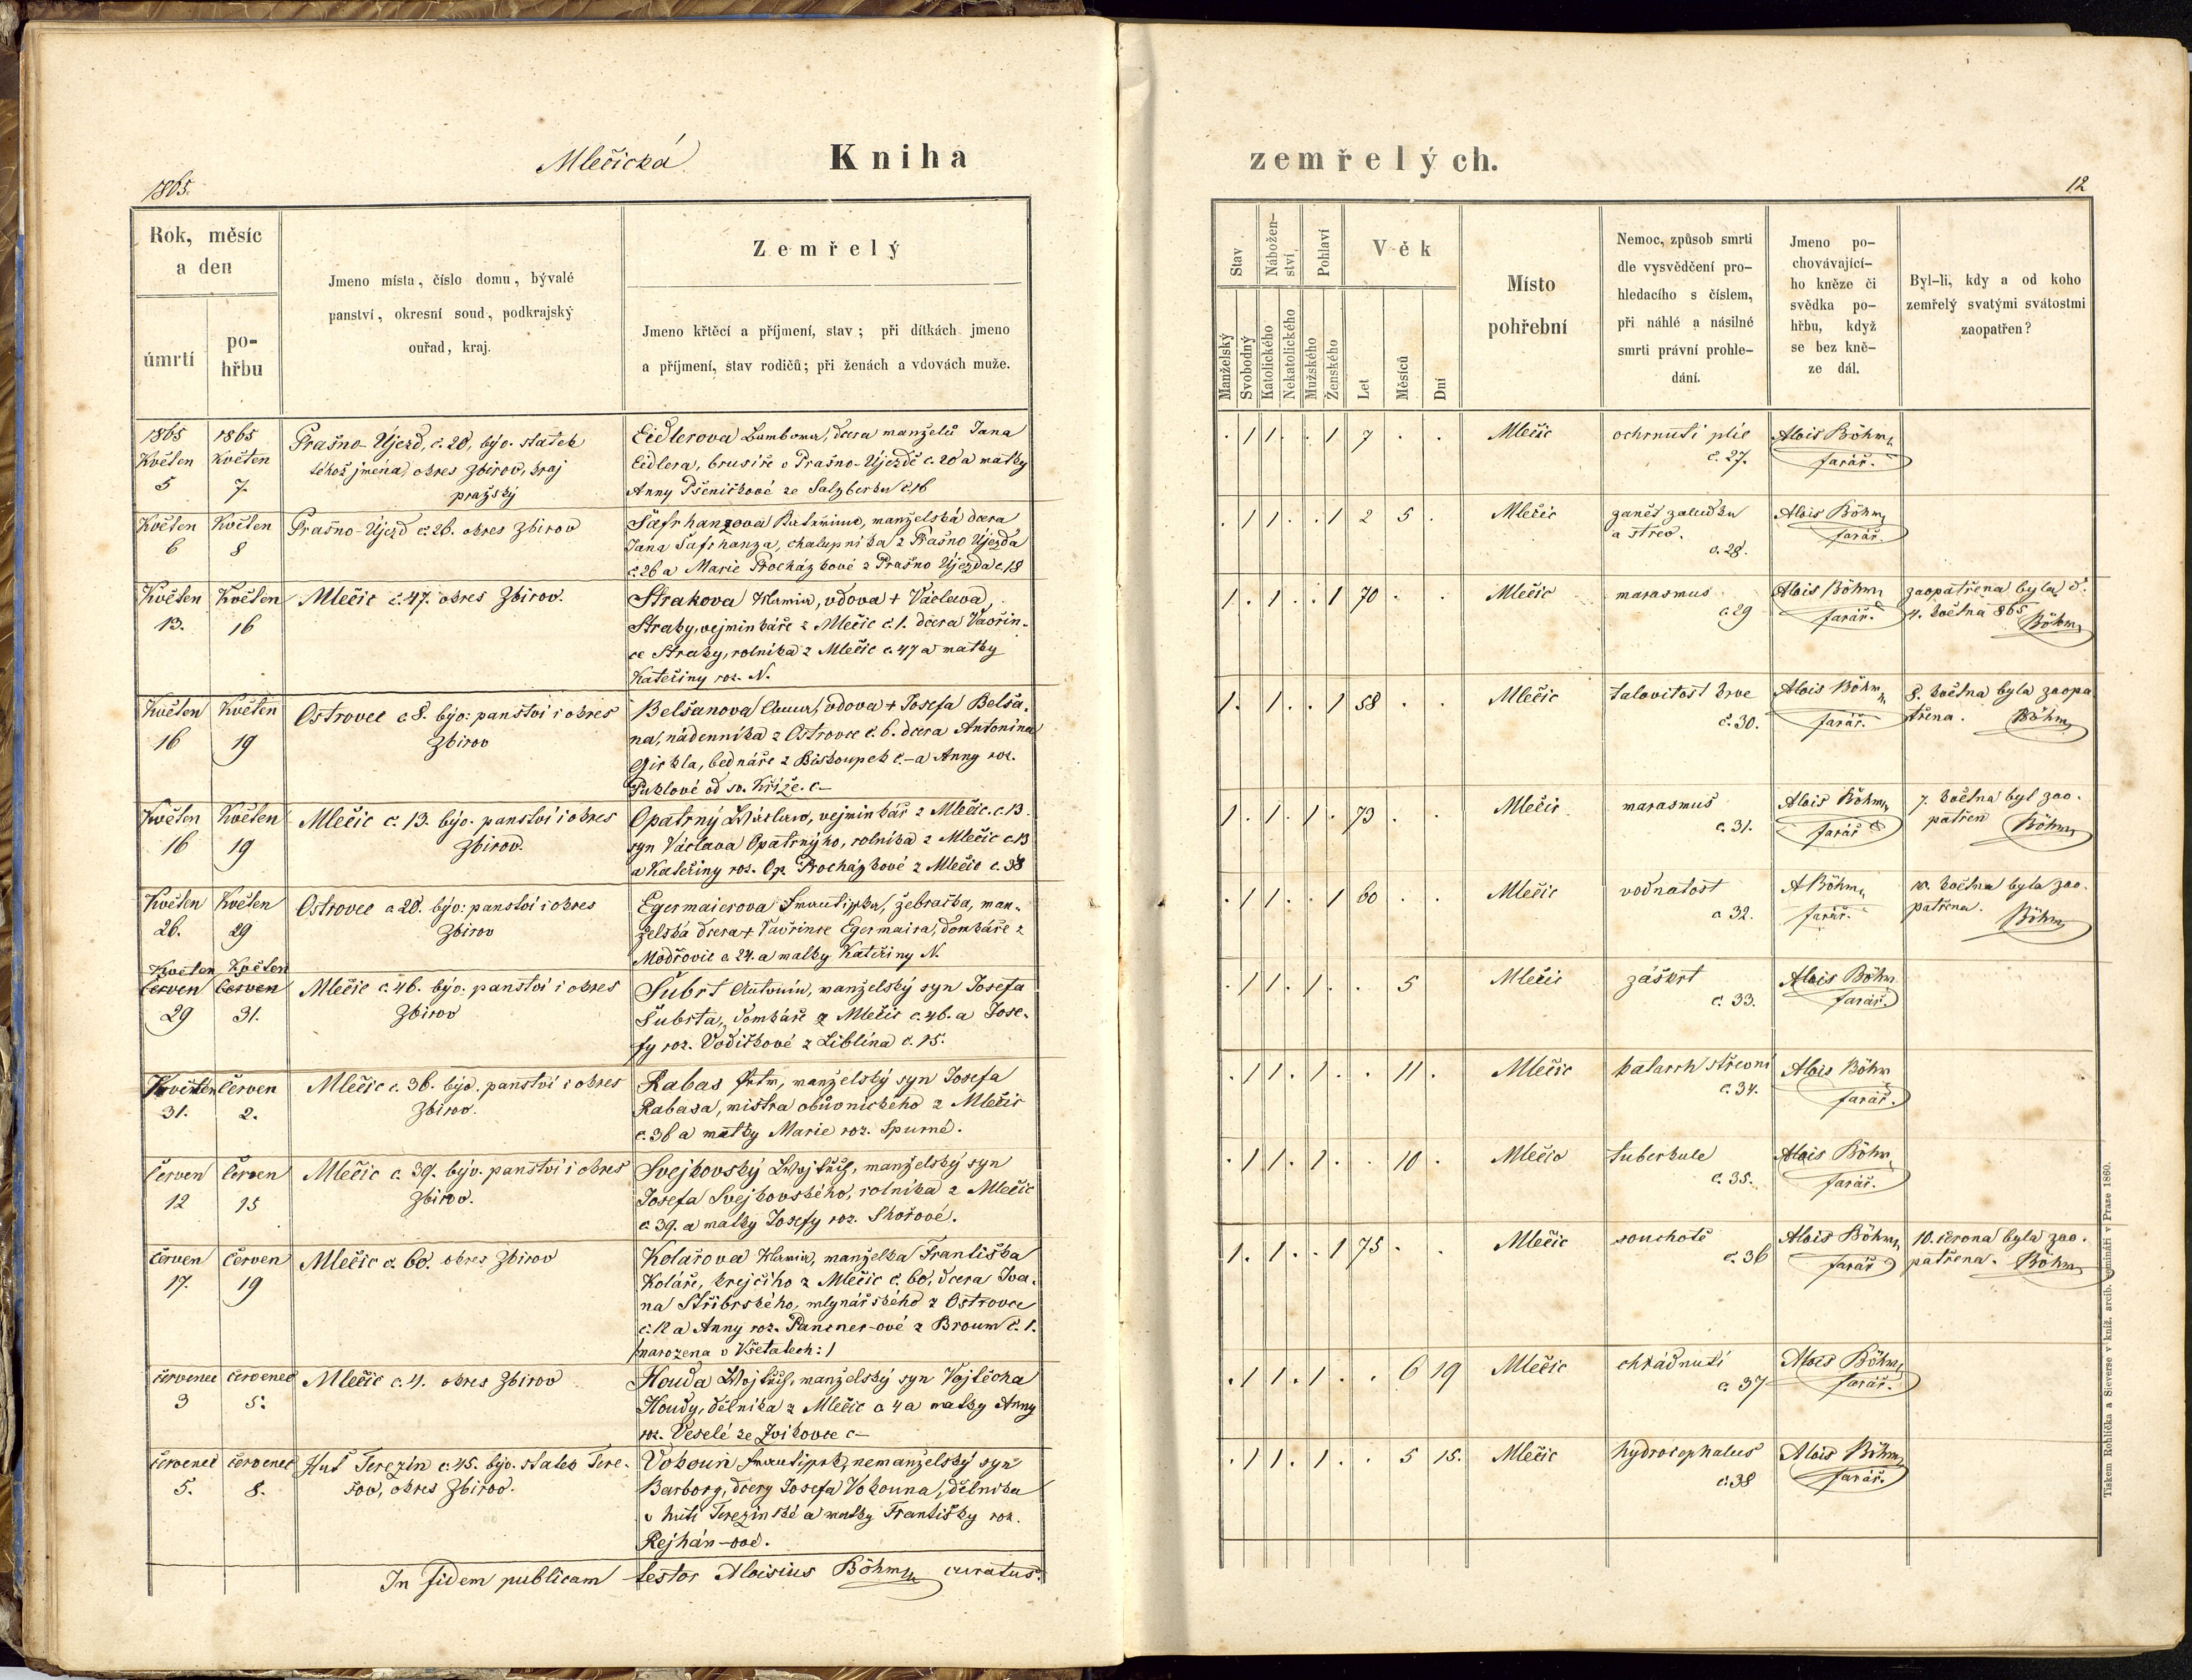 Mlečická Kniha
1865.
Rok, měsíc
a den
úmrtí
po-
hřbu
Jmeno místa, číslo domu, bývalé
panství, okresní soud, podkrajský
ouřad, kraj.
Zemřelý
Jmeno křtěcí a příjmení, stav; při dítkách jmeno
a příjmení, stav rodičů; při ženách a vdovách muže.
1865 1865
Květen Květen
5 7.
Prašno-Újezd, č. 20, býv. statek
téhož jména, okres Zbirov, kraj
pražský
Eidlerova Barbora, dcera manželů Jana
Eidlera, brusiře v Prašno-Újezdě č. 20 a matky
Anny Pšeničkové ze Salzberku č. 16
Květen Květen
6 8
Prašno-Újezd č. 26. okres Zbirov
Šafrhanzova Kateřina, manželská dcera
Jana Šafrhanza, chalupníka z Prašno Újezda
č. 26 a Marie Procházkové z Prašno Újezda č. 18
Květen Květen
13. 16
Mlečic č. 47. okres Zbirov.
Strakova Maria, vdova + Václava
Straky, vejminkáře z Mlečic č. 1. dcera Vavřin-
ce Straky, rolníka z Mlečic č. 47 a matky
Kateřiny roz. N.
Květen Květen
16 19
Ostrovec č 8. býv: panství i okres
Zbirov
Belšanova Anna, vdova + Josefa Belša-
na, nádenníka z Ostrovce č. 6. dcera Antonína
bednáře z Biskoupek č. – a Anny roz.
od sv. Kříže. č –
Květen Květen
16 19
Mlečic č. 13. býv. panství i okres
Zbirov.
Opatrný Václav, vejminkář z Mlečic. č. 13.
syn Václava Opatrnýho, rolníka z Mlečic č. 13
a Kateřiny roz. Op. Procházkové z Mlečic č. 38
Květen Květen
26. 29
Ostrovec č 20. býv: panství i okres
Zbirov
Egermaierova Františka, žebračka, man-
želská dcera + Vavřince Egermaira, domkáře z
Modřovic č. 24. a matky Kateřiny N.
Květen Květen
červen červen
29 31.
Mlečic č. 46. býv. panství i okres
Zbirov
Šubrt Antonín, manželský syn Josefa
Šubrta, domkáře z Mlečic č. 46. a Jose-
fy roz. Vodičkové z Liblína č. 15.
Květen Červen
31. 2.
Mlečic č. 36. býv. panství i okres
Zbirov.
Rabas Petr, manželský syn Josefa
Rabasa, mistra obůvnického z Mlečic
č. 36 a matky Marie roz. Spurné.
Červen Červen
12 15
Mlečic č. 39. býv. panství i okres
Zbirov.
Svejkovský Vojtěch, manželský syn
Josefa Svejkovského, rolníka z Mlečic
č. 39. a matky Josefy roz. Shořové.
Červen Červen
17. 19
Mlečic č. 60. okres Zbirov
Kolařova Maria, manželka Františka
Koláře, krejčího z Mlečic č. 60, dcera Iva-
na Stříbrského, mlynářského z Ostrovce
č. 12 a Anny roz. Pancner-ové z Broum č. 1.
/narozena v Křetalech:/
červenec červenec
3 5.
Mlečic č. 4. okres Zbirov
Houda Vojtěch, manželský syn Vojtěcha
Houdy, dělníka z Mlečic č 4 a matky Anny
roz. Veselé ze Zvikovce č –
červenec červenec
5. 8.
Huť Terezín č. 45. býv. statek Tere-
šov, okres Zbirov.
Vokoun František, nemanželský syn
Barbory, dcery Josefa Vokouna, dělníka
v huti Terezínské a matky Františky roz.
Rejhán-ové.
In fidem publicam testor Aloisius Böhm curatus.
zemřelých.
12
Stav
Nábožen-
ství
Pohlaví
Věk
Manželský
Svobodný
Katolického
Nekatolického
Mužského
Ženského
Let
Měsíců
Dní
Místo
pohřební
Nemoc, způsob smrti
dle vysvědčení pro-
hledacího s číslem,
při náhlé a násilné
smrti právní prohle-
dání.
Jmeno po-
chovávající-
ho kněze či
svědka po-
hřbu, když
se bez kně-
ze dál.
Byl-li, kdy a od koho
zemřelý svatými svátostmi
zaopatřen?
. 1 1 . . 1 7 . . Mlečic ochrnutí plic Alois Böhm,
č. 27. farář.
. 1 1 . . 1 2 5 . Mlečic zanět zaludku Alois Böhm,
a střev. farář.
č. 28.
1 . 1 . . 1 70 . . Mlečic marasmus Alois Böhm zaopatřena byla d.
č. 29 farář. 4. května 865 Böhm
1 . 1 . . 1 58 . . Mlečic talovitost krve Alois Böhm, 8. května byla zaopa
č. 30. farář. třena. Böhm
1 . 1 . 1 . 73 . . Mlečic marasmus Alois Böhm, 7. května byl zao-
č. 31. farář patřen Böhm
. 1 1 . . 1 60 . . Mlečic vodnatost A Böhm, 10. května byla zao-
č 32. farář. patřena. Böhm
. 1 1 . 1 . . 5 Mlečic záškrt Alois Böhm
č. 33. farář.
. 1 1 . 1 . . 11 . Mlečic katarrh střevní Alois Böhm
č. 34. farář.
. 1 1 . 1 . . 10 . Mlečic tuberkule Alois Böhm,
č. 35. farář.
1 . 1 . . 1 75 . . Mlečic souchotě Alois Böhm, 10. června byla zao-
č. 36 farář patřena. Böhm
. 1 1 . 1 . . 6 19 Mlečic chřádnutí Alois Böhm,
č. 37 farář.
. 1 1 . 1 . . 5 15. Mlečic hydrocephalus Alois Böhm,
č. 38 farář.
Tiskem Rohlíčka a Sieverse v kníž. arcib. semináři v Praze 1860.